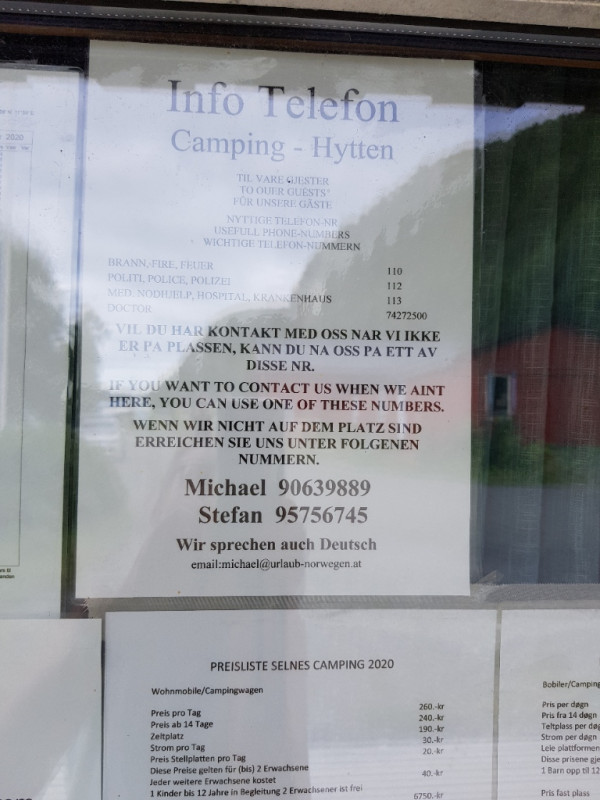 Info Telefon
Camping - Hytten
TIL VARE GJESTER
TO OUER GUESTS'
FÜR UNSERE GÄSTE
NYTTIGE TELEFON-NR
USEFULL PHONE-NUMBERS
WICHTIGE TELEFON-NUMMERN
BRANN, FIRE, FEUER 110
POLITI, POLICE, POLIZEI 112
MED. NODHJELP, HOSPITAL, KRANKENHAUS 113
DOCTOR 74272500
VIL DU HAR KONTAKT MED OSS NAR VI IKKE
ER PA PLASSEN, KANN DU NA OSS PA ETT AV
DISSE NR.
IF YOU WANT TO CONTACT US WHEN WE AINT
HERE, YOU CAN USE ONE OF THESE NUMBERS.
WENN WIR NICHT AUF DEM PLATZ SIND
ERREICHEN SIE UNS UNTER FOLGENEN
NUMMERN.
Michael 90639889
Stefan 95756745
Wir sprechen auch Deutsch
email:michael@urlaub-norwegen.at
2020
PREISLISTE SELNES CAMPING 2020
Wohnmobile/Campingwagen
Preis pro Tag 260.-kr
Preis ab 14 Tage 240.-kr
Zeltplatz 190.-kr
Strom pro Tag 30.-kr
Preis Stellplatten pro Tag 20.-kr
Diese Preise gelten für (bis) 2 Erwachsene
Jeder weitere Erwachsene kostet 40.-kr
1 Kinder bis 12 Jahre in Begleitung 2 Erwachsener ist frei
6750.-kr
Bobiler/Camping
Pris per døgn
Pris fra 14 døgn
Teltplass per døg
Strom per døgn
Leie plattformen
Disse prisene gje
1 Barn opp til 12
Pris fast plass